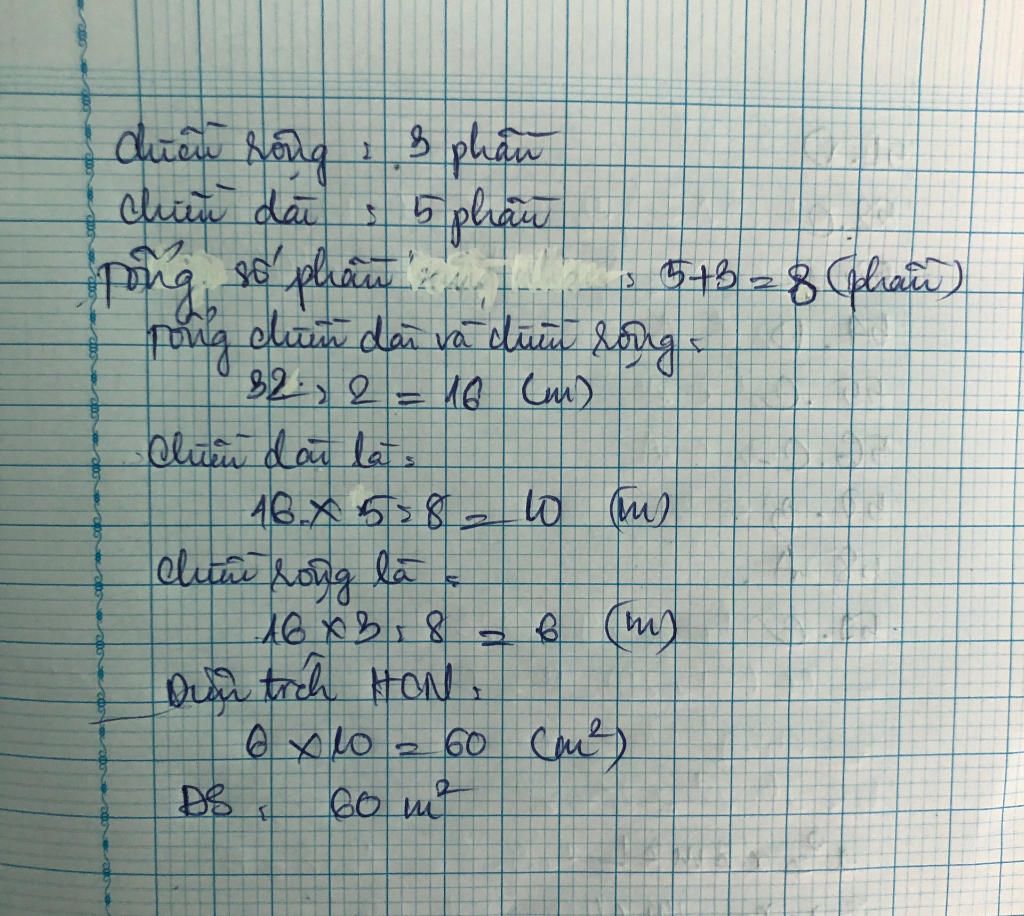 Chiều rộng : 3 phần
Chiều dài : 5 phần
Tổng số phần : 5+3 = 8 (phần)
Tổng chiều dài và chiều rộng :
32 : 2 = 16 (m)
Chiều dài là :
16 x 5 : 8 = 10 (m)
Chiều rộng là :
16 x 3 : 8 = 6 (m)
Diện tích HCN :
6 x 10 = 60 (m²)
ĐS : 60 m²